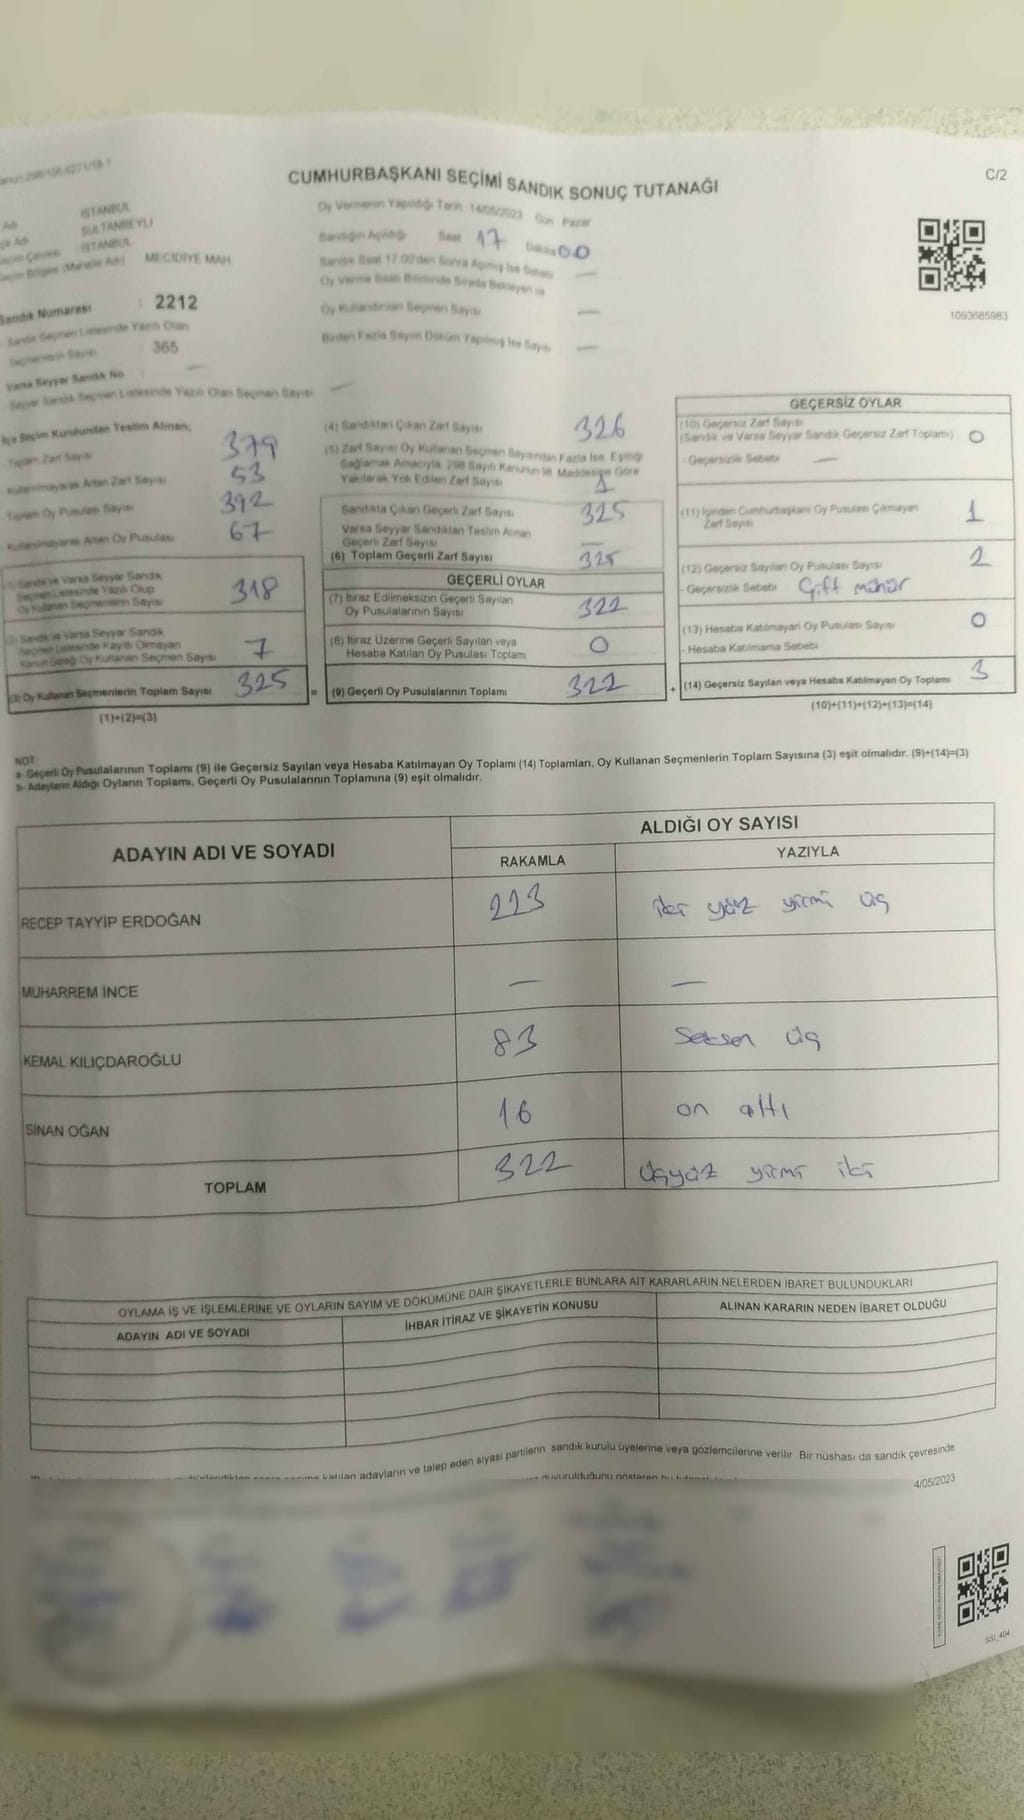 CUMHURBAŞKANI SEÇİMİ SANDIK SONUÇ TUTANAĞI
C/2
Adı İSTANBUL
İlçe Adı SULTANBEYLİ
Seçim Çevresi : İSTANBUL
Seçim Bölgesi (Mahalle Adı) MECİDİYE MAH
Sandık Numarası : 2212
Sandık Seçmen Listesinde Yazılı Olan
Seçmenlerin Sayısı : 365
Varsa Seyyar Sandık No : —
Seyyar Sandık Seçmen Listesinde Yazılı Olan Seçmen Sayısı —
Oy Vermenin Yapıldığı Tarih 14/05/2023 Gün : Pazar
Sandığın Açıldığı Saat 17 Dakika 00
Sandık Saat 17:00'den Sonra Açılmış İse Sebebi —
Oy Verme Saati Bitiminde Sırada Bekleyen ve
Oy Kullandırılan Seçmen Sayısı —
Birden Fazla Sayım Döküm Yapılmış İse Sayısı —
1093685983
İlçe Seçim Kurulundan Teslim Alınan;
Toplam Zarf Sayısı 379
Kullanılmayarak Artan Zarf Sayısı 53
Toplam Oy Pusulası Sayısı 392
Kullanılmayarak Artan Oy Pusulası 67
(1) Sandık ve Varsa Seyyar Sandık
Seçmen Listesinde Yazılı Olup
Oy Kullanan Seçmenlerin Sayısı 318
(2) Sandık ve Varsa Seyyar Sandık
Seçmen Listesinde Kayıtlı Olmayan
Kanun Gereği Oy Kullanan Seçmen Sayısı 7
(3) Oy Kullanan Seçmenlerin Toplam Sayısı 325
(1)+(2)=(3)
(4) Sandıktan Çıkan Zarf Sayısı 326
(5) Zarf Sayısı Oy Kullanan Seçmen Sayısından Fazla İse, Eşitliği
Sağlamak Amacıyla, 298 Sayılı Kanunun 98. Maddesine Göre
Yakılarak Yok Edilen Zarf Sayısı 1
Sandıkta Çıkan Geçerli Zarf Sayısı 325
Varsa Seyyar Sandıktan Teslim Alınan
Geçerli Zarf Sayısı —
(6) Toplam Geçerli Zarf Sayısı 325
GEÇERLİ OYLAR
(7) İtiraz Edilmeksizin Geçerli Sayılan
Oy Pusulalarının Sayısı 322
(8) İtiraz Üzerine Geçerli Sayılan veya
Hesaba Katılan Oy Pusulası Toplamı 0
= (9) Geçerli Oy Pusulalarının Toplamı 322
GEÇERSİZ OYLAR
(10) Geçersiz Zarf Sayısı
(Sandık ve Varsa Seyyar Sandık Geçersiz Zarf Toplamı) 0
- Geçersizlik Sebebi —
(11) İçinden Cumhurbaşkanı Oy Pusulası Çıkmayan
Zarf Sayısı 1
(12) Geçersiz Sayılan Oy Pusulası Sayısı 2
- Geçersizlik Sebebi Çift mühür
(13) Hesaba Katılmayan Oy Pusulası Sayısı 0
- Hesaba Katılmama Sebebi
+ (14) Geçersiz Sayılan veya Hesaba Katılmayan Oy Toplamı 3
(10)+(11)+(12)+(13)=(14)
NOT:
a- Geçerli Oy Pusulalarının Toplamı (9) ile Geçersiz Sayılan veya Hesaba Katılmayan Oy Toplamı (14) Toplamları, Oy Kullanan Seçmenlerin Toplam Sayısına (3) eşit olmalıdır. (9)+(14)=(3)
b- Adayların Aldığı Oyların Toplamı, Geçerli Oy Pusulalarının Toplamına (9) eşit olmalıdır.
ADAYIN ADI VE SOYADI ALDIĞI OY SAYISI
RAKAMLA YAZIYLA
RECEP TAYYİP ERDOĞAN 223 iki yüz yirmi üç
MUHARREM İNCE — —
KEMAL KILIÇDAROĞLU 83 Seksen üç
SİNAN OĞAN 16 on altı
TOPLAM 322 üçyüz yirmi iki
OYLAMA İŞ VE İŞLEMLERİNE VE OYLARIN SAYIM VE DÖKÜMÜNE DAİR ŞİKAYETLERLE BUNLARA AİT KARARLARIN NELERDEN İBARET BULUNDUKLARI
ADAYIN ADI VE SOYADI İHBAR İTİRAZ VE ŞİKAYETİN KONUSU ALINAN KARARIN NEDEN İBARET OLDUĞU
katılan adayların ve talep eden siyasi partilerin sandık kurulu üyelerine veya gözlemcilerine verilir. Bir nüshası da sandık çevresinde
duyurulduğunu gösteren bu
4/05/2023
SSI_404